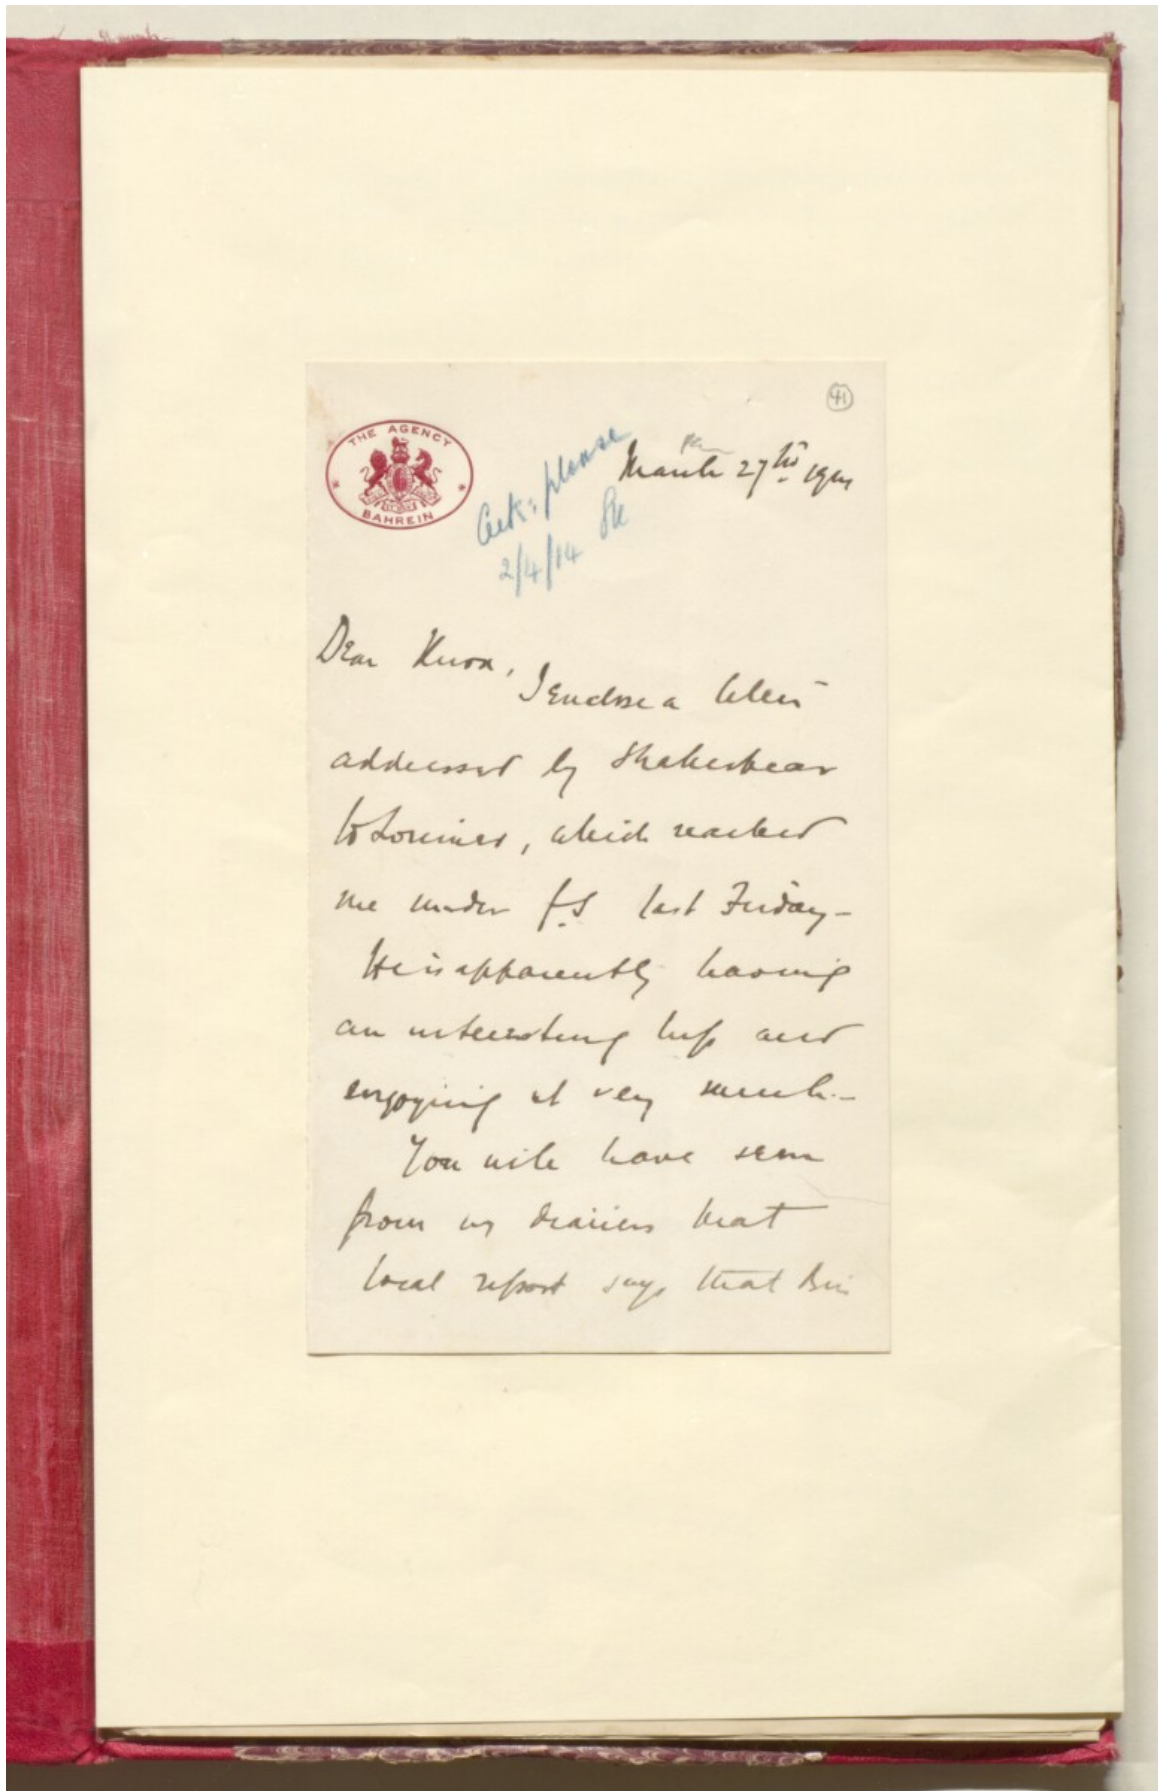 41
THE AGENCY
BAHREIN
March 27th 1914
Ack: please
2/4/14
Dear Knox,
I enclose a letter
addressed by Shakespear
to Lorimer, which reached
me under f.s last Friday -
He is apparently having
an interesting trip and
enjoying it very much. -
You will have seen
from my diaries that
local report says that Bin